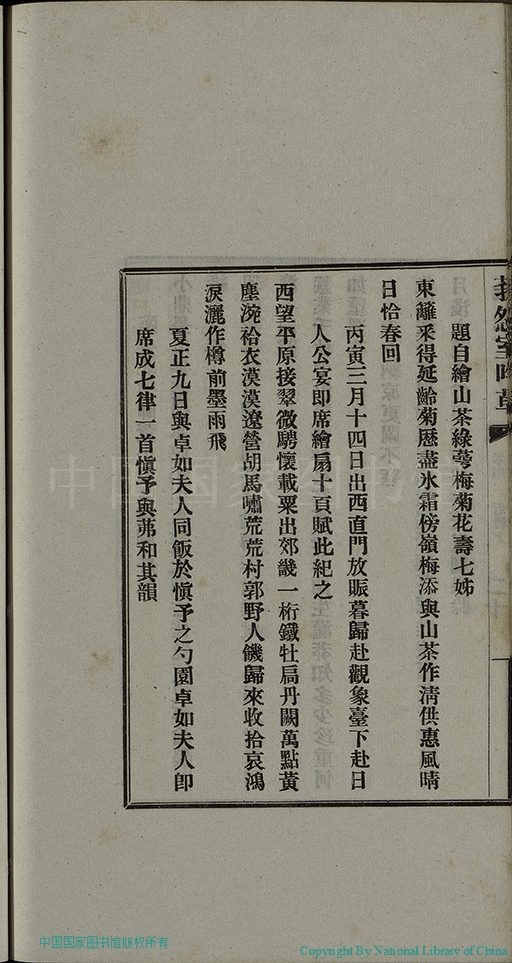 題自繪山茶綠萼梅菊花壽七姊
東籬采得延齡菊歷盡氷霜傍嶺梅添與山茶作淸供惠風晴
日恰春回
丙寅三月十四日出西直門放賑暮歸赴觀象臺下赴日
人公宴即席繪扇十頁賦此紀之
西望平原接翠微騁懷載粟出郊畿一桁鐵牡扃丹闕萬點黃
塵涴袷衣漠漠遼營胡馬嘯荒荒村郭野人饑歸來收拾哀鴻
淚灑作樽前墨雨飛
夏正九日與卓如夫人同飯於愼予之勺園卓如夫人卽
席成七律一首愼予與茀和其韻
中国国家图书馆版权所有
Copyright By National Library of China